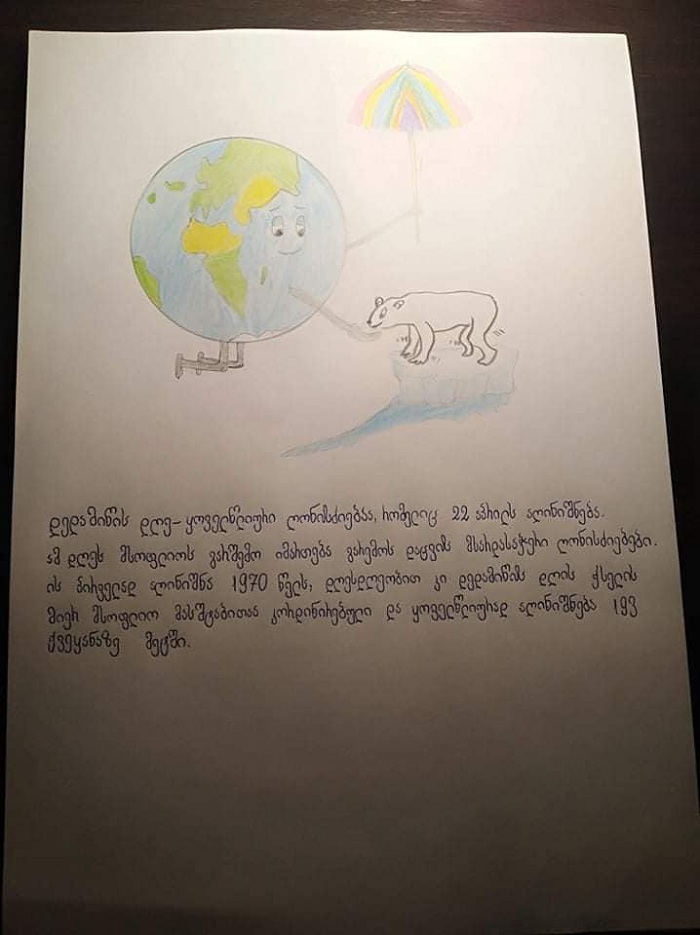 დედამიწის დღე - ყოველწლიური ღონისძიებაა, რომელიც 22 აპრილს აღინიშნება.
ამ დღეს მსოფლიოს გარშემო იმართება გარემოს დაცვის მხარდასაჭერი ღონისძიებები.
ის პირველად აღინიშნა 1970 წელს, დღესდღეობით კი დედამიწის დღის ქსელის
მიერ მსოფლიო მასშტაბითაა კორდინირებული და ყოველწლიურად აღინიშნება 193
ქვეყანაზე მეტში.